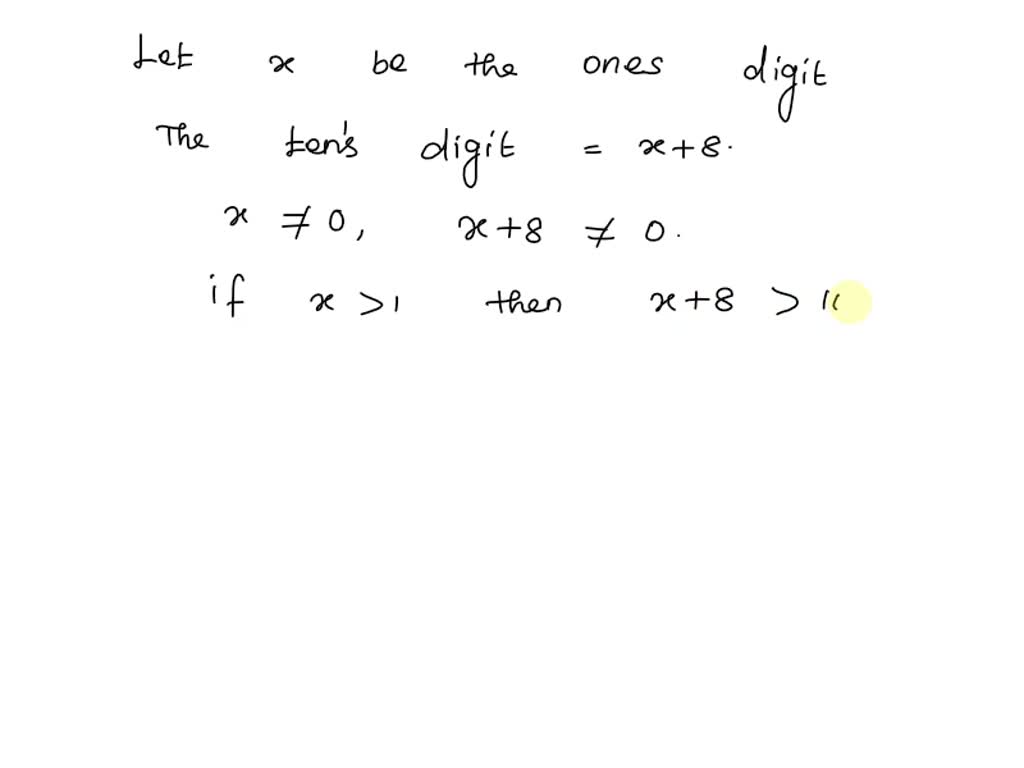 Let x be the ones digit
The ten's digit = x+8.
x ≠ 0, x+8 ≠ 0.
if x >1 then x+8 >